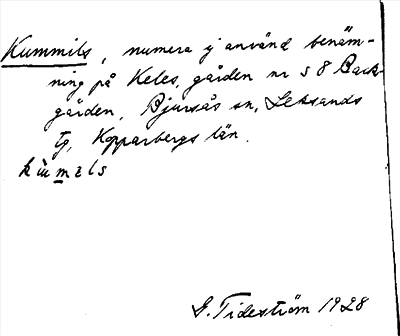 Kummils, numera ej använd benäm-
ning på Keles, gården nr 58 Back-
gården, Bjursås sn, Leksands
tg, Kopparbergs län.
kùmals
G. Tideström 1928